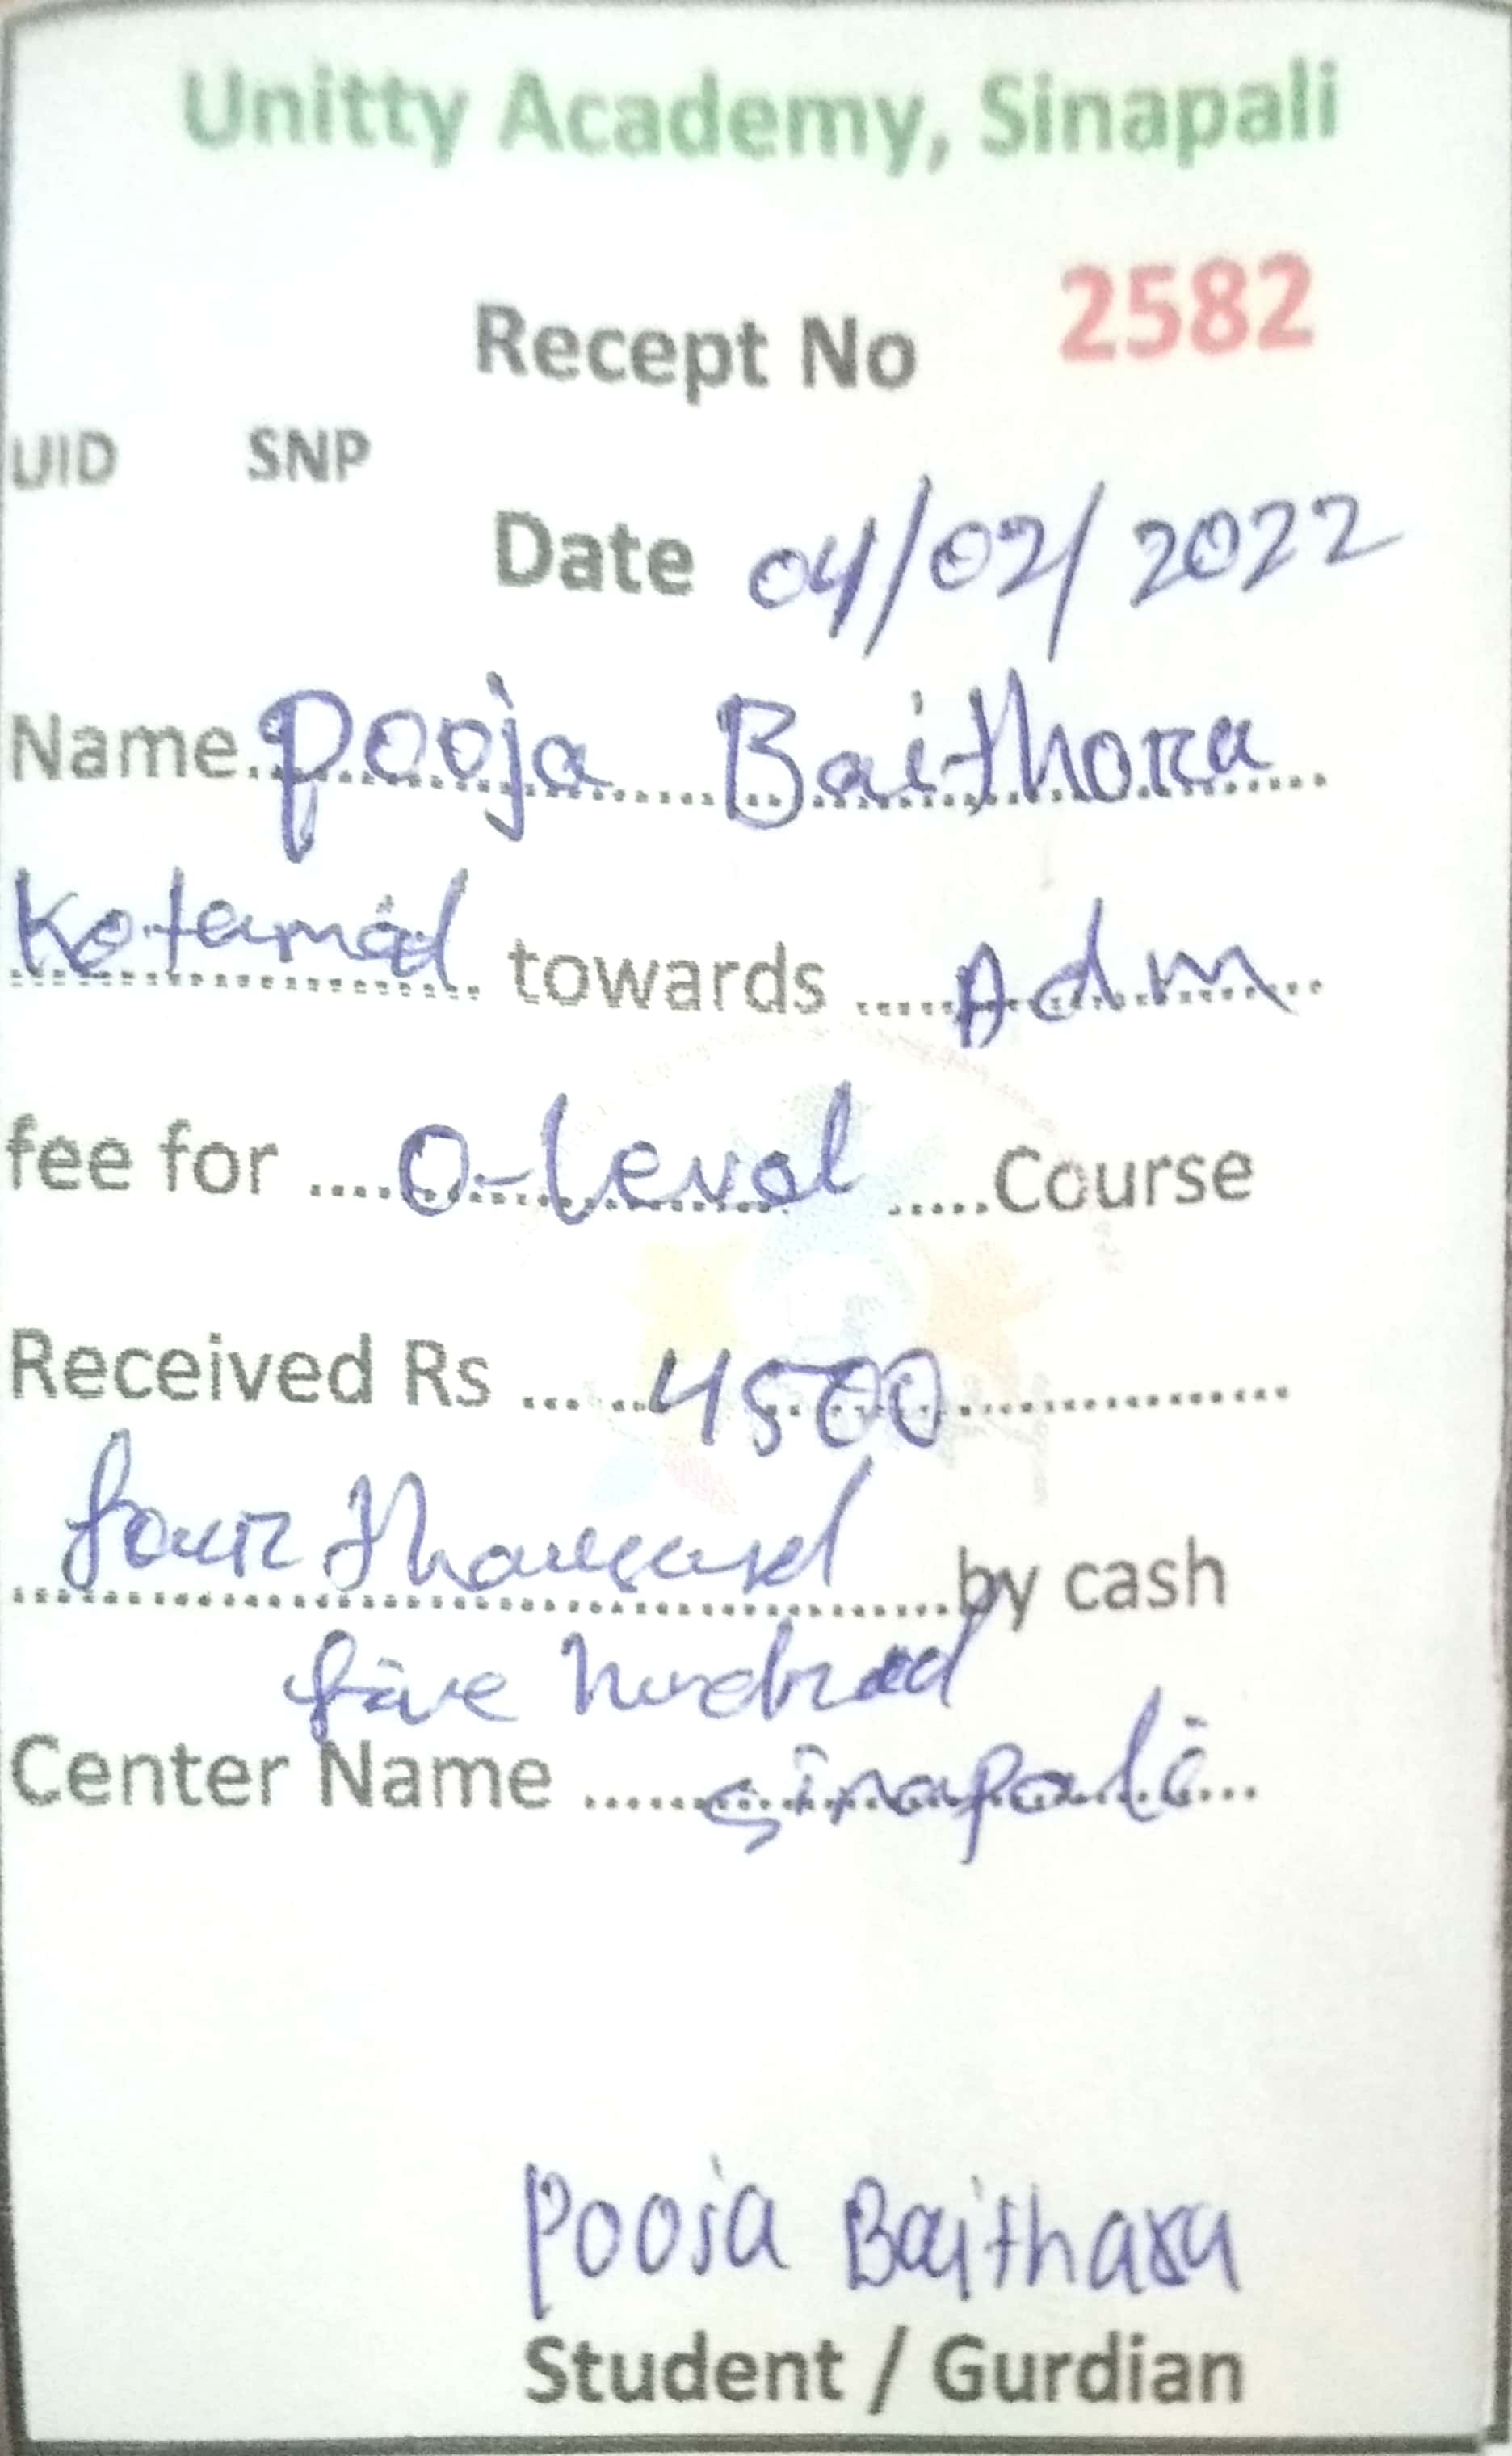 Unitty Academy, Sinapali
Recept No 2582
UID SNP
Date 04/02/2022
Name. Pooja Baithora
Kotamal towards Adm
fee for .... O-Level .....Course
Received Rs ... 4500
four thousand by cash
five hundred
Center Name Sinapali
Pooja Baithara
Student / Gurdian